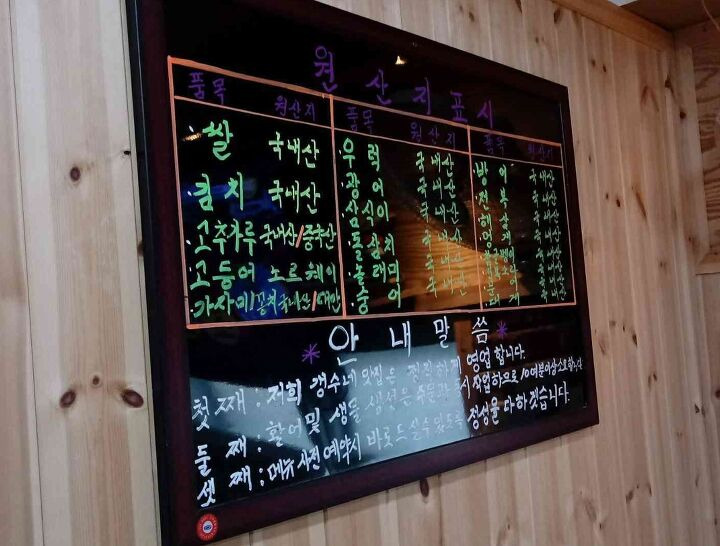 원산지표시
품목 원산지 품목 원산지 품목 원산지
쌀 국내산
김치 국내산
고추가루 국내산/중국산
고등어 노르웨이
가자미/꽁치 국내산/대만
우럭 국내산
광어 국내산
삼식이 국내산
돌삼치 국내산
놀래미 국내산
숭어 국내산
방어 국내산
전복 국내산
해삼 국내산
멍게 국내산
국내산
국내산
국내산
대게 국내산
*안내말씀*
첫째 : 저희 갱수네 맛집은 정직하게 영업합니다.
둘째 : 활어및 생물 생선은 주문과 동시 작업하므로 10여분이상 소요됩니다
셋째 : 메뉴 사전 예약시 바로드실수있도록 정성을 다하겠습니다.